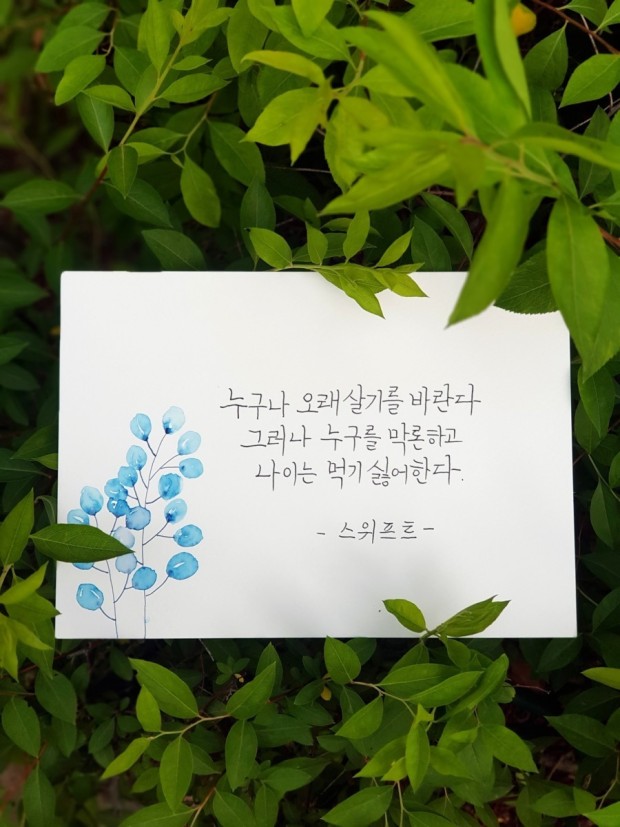 누구나 오래 살기를 바란다
그러나 누구를 막론하고
나이는 먹기 싫어한다.
- 스위프트 -